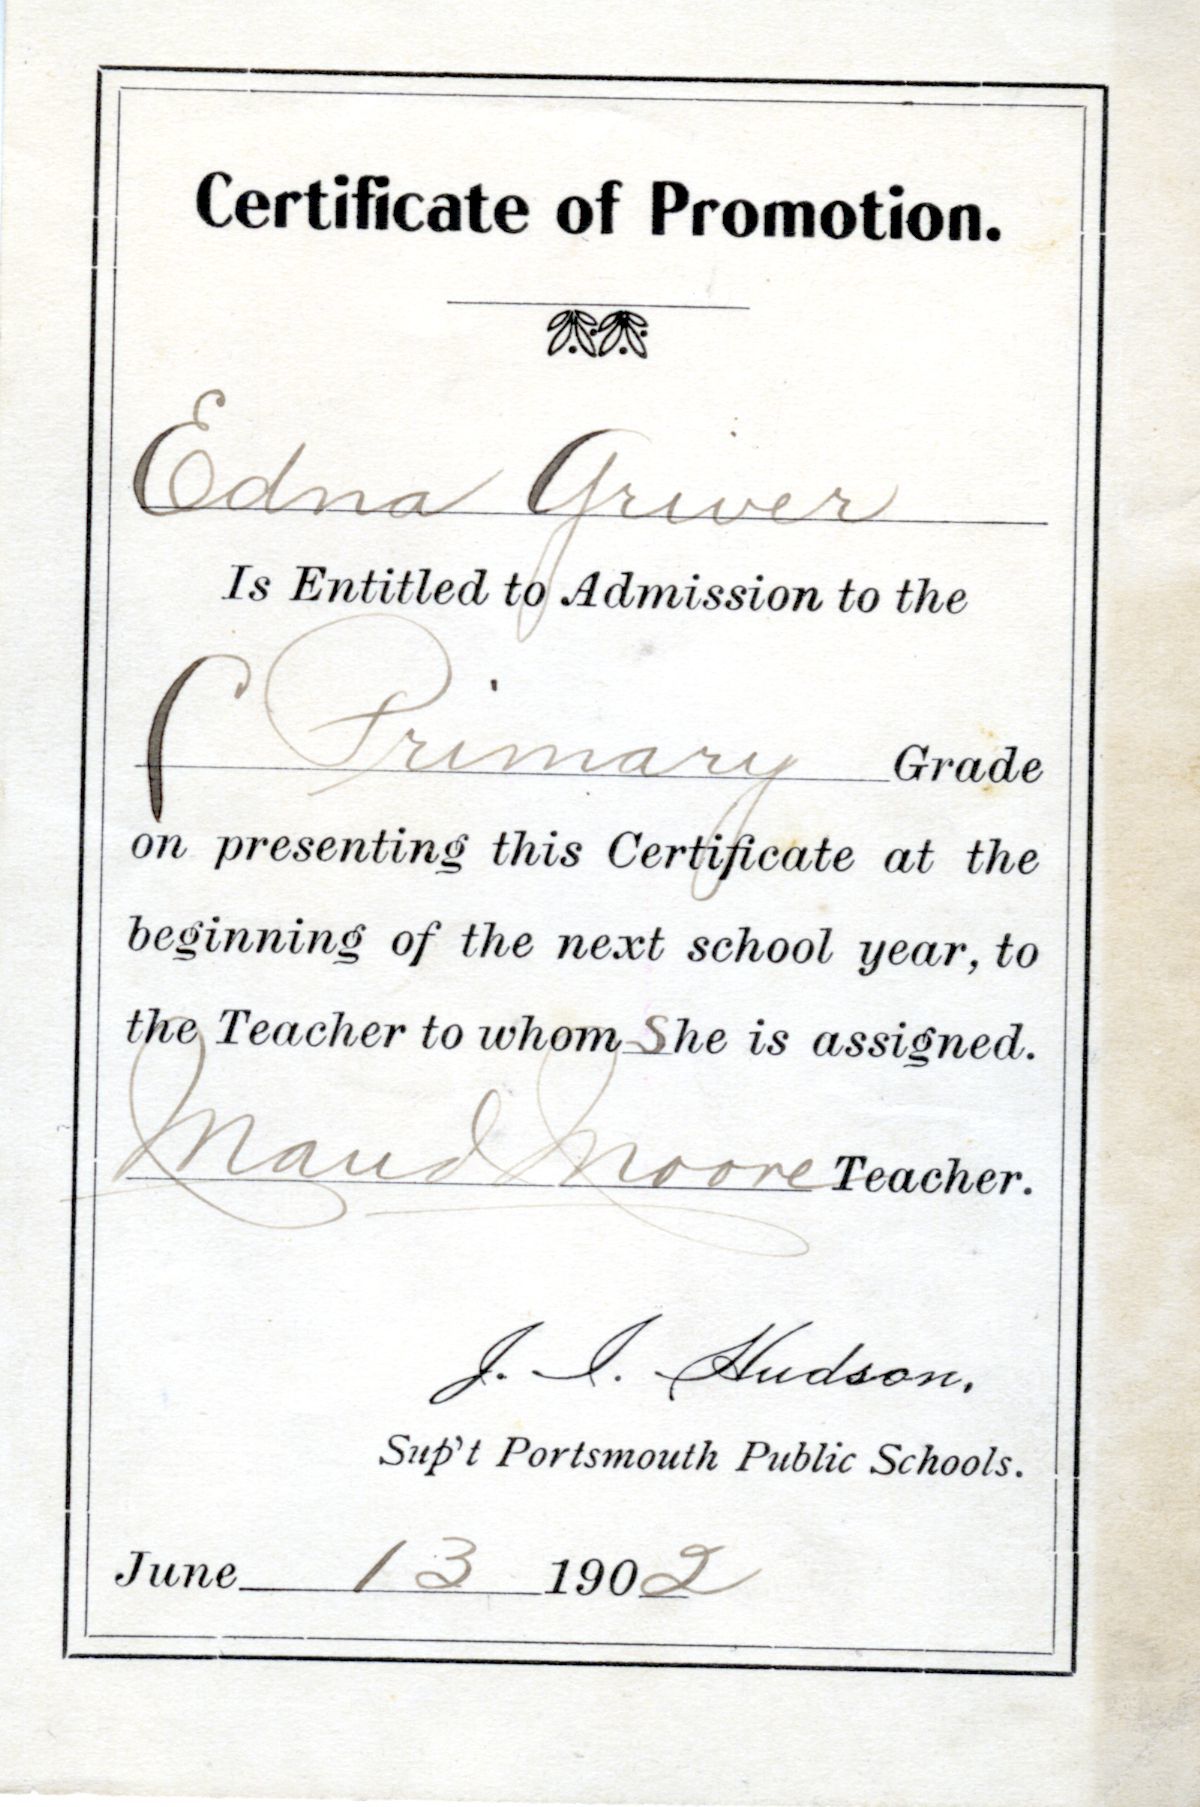 Certificate of Promotion.
Edna Griver
Is Entitled to Admission to the
Primary Grade
on presenting this Certificate at the
beginning of the next school year, to
the Teacher to whom She is assigned.
Maud Moore Teacher.
J. I. Hudson.
Sup't Portsmouth Public Schools.
June 13 1902